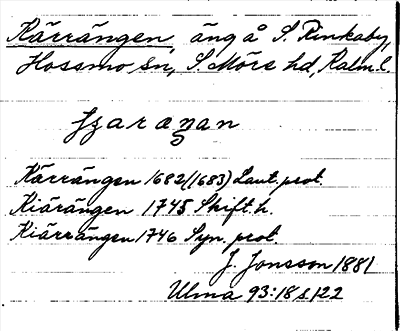 Kärrängen, äng å S. Rinkaby,
Hossmo sn, S. Möre hd, Kalm. l.
Kärrängen 1682/(1683) Lant. prot.
Kiärängen 1745 Skift. h.
Kiärrängen 1746 Syn. prot.
J. Jonsson 1881
Ulma 93:18 s. 122